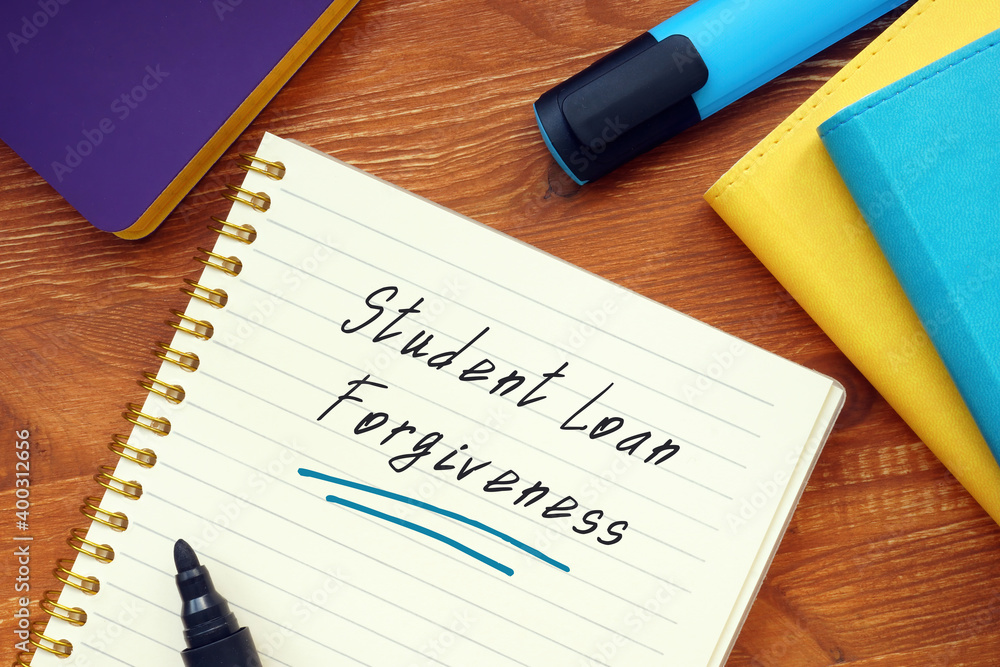 Student Loan
Forgiveness
Adobe Stock | #400312656